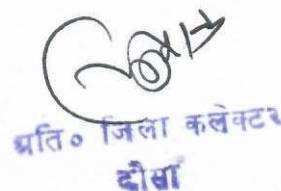 प्रति० जिला कलेक्टर
दौसा